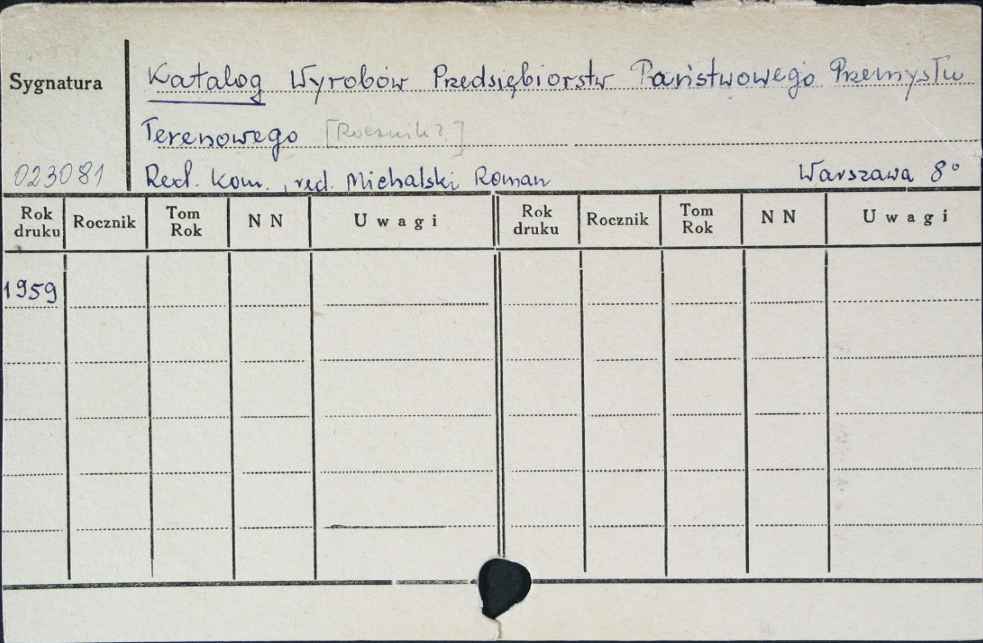 Sygnatura
Katalog Wyrobów Przedsiębiorstw Państwowego Przemysłu
Terenowego [Rocznik?]
023081
Red. Kom., red. Michalski Roman Warszawa 8°
Rok druku Rocznik Tom Rok N N Uwagi Rok druku Rocznik Tom Rok N N Uwagi
1959